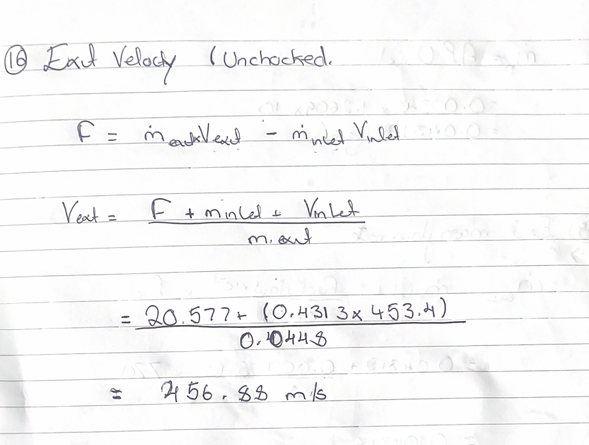 ⑯ Exit Velocity (Unchocked.
F = ṁexit Vexit - ṁinlet Vinlet
Vexit = F + minlet + Vinlet
m.exit
= 20.577 + (0.4313 x 453.4)
0.0448
= 456.88 m/s